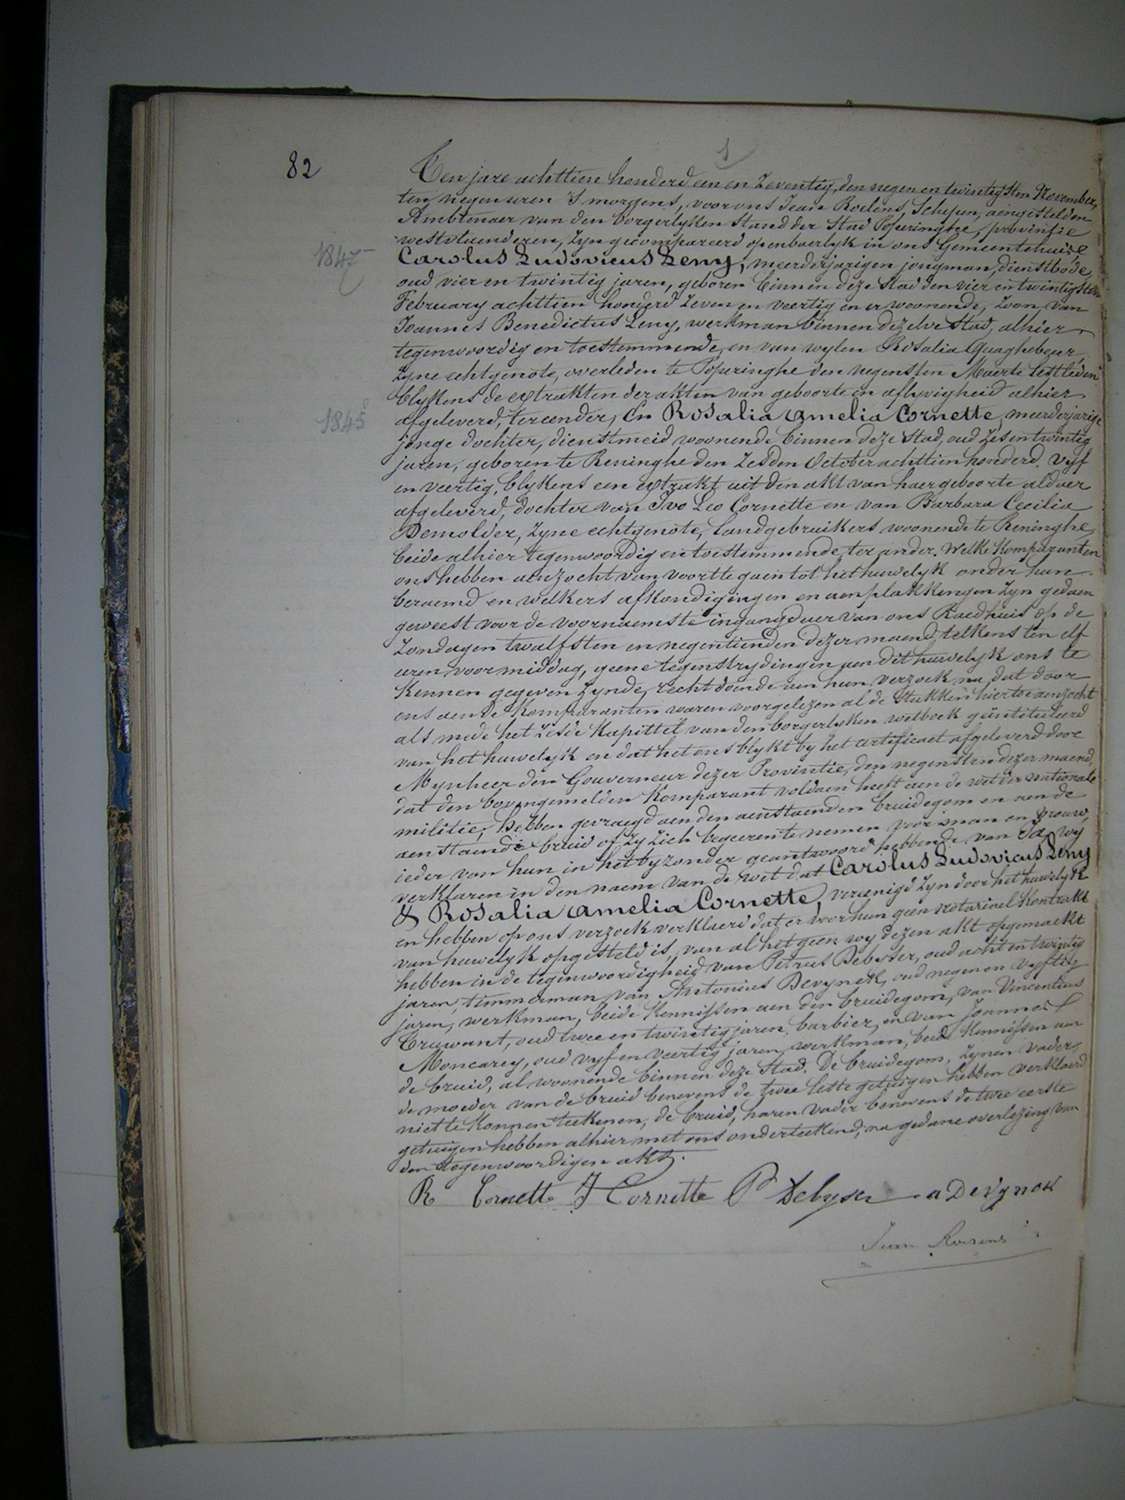 82
Ten jare achttien honderd een en Zeventig, den negen en twintigsten November,
ten negen uren 's morgens, voor ons Jean Roelens, Schepen, aengestelden
Ambtenaer van den borgerlyken Stand der Stad Poperinghe, provinsie
westvlaenderen, Zyn gecompareerd openbaerlyk in ons Gemeentehuis
1847
Carolus Ludovicus Leny, meerderjarigen jongman, dienstbode,
oud vier en twintig jaren, geboren binnen deze Stad den vier en twintigsten
February achttien honderd Zeven en veertig en er woonende, Zoon van
Joannes Benedictus Leny, werkman binnen dezelve Stad, alhier
tegenwoordig en toestemmende, en van wylen Rosalia Quaghebeur,
Zyne echtgenote, overleden te Poperinghe den negensten Maerte lestleden
blykens de extrakten der akten van geboorte en aflyvigheid alhier
1845
afgeleverd, ter eender, En Rosalia Amelia Cornette, meerderjarige
jonge dochter, dienstmeid woonende binnen deze Stad, oud Zes en twintig
jaren, geboren te Reninghe den Zesden October achttien honderd vyf
en veertig, blykens een extrakt uit den akt van haer geboorte aldaer
afgeleverd, dochter van Ivo Leo Cornette en van Barbara Cecilia
Demolder, Zyne echtgenote, landgebruikers woonende te Reninghe,
beide alhier tegenwoordig en toestemmende, ter ander. Welke Komparanten
ons hebben aenzocht van voort te gaen tot het huwelyk onder hun
beraemd en welkers afkondigingen en aenplakkingen Zyn gedaen
geweest voor de voornaemste ingangdeur van ons Raedhuis op de
Zondagen twaelfsten en negentienden dezer maend, telkens ten elf
uren voormiddag, geene tegenstrydingen aen dit huwelyk ons te
Kennen gegeven Zynde, recht doende aen hun verzoek na dat door
ons aen de Komparanten waren voorgelezen al de Stukken hiertoe aenzocht
als mede het Zesde Kapittel van den borgerlyken wetboek geïntituleerd
van het huwelyk en dat het ons blykt by het certificaet afgeleverd door
Mynheer den Gouverneur dezer Provintie, den negensten dezer maend,
dat den bovengemelden Komparant voldaen heeft aen de wet der nationale
militie, hebben gevraegd aen den aenstaenden bruidegom en aen de
aenstaende bruid of Zy Zich begeeren te nemen voor man en vrouw,
ieder van hun in het byzonder geantwoord hebbende van Ja, Wy
verklaren in den naem van de wet dat Carolus Ludovicus Leny
& Rosalia Amelia Cornette, vereenigd Zyn door het huwelyk
en hebben op ons verzoek verklaerd dat er voor hun geen notarieel Kontrakt
van huwelyk opgesteld is, van al het geen wy dezen akt opgemaekt
hebben in de tegenwoordigheid van Petrus Debyser, oud acht en twintig
jaren, timmerman, van Antonius Devynck, oud negen en vyftig
jaren, werkman, beide Kennissen aen den bruidegom, van Vincentius
Truwant, oud twee en twintig jaren, barbier, en van Joannes
Moncarey, oud vyf en veertig jaren, werkman, beide Kennissen aen
de bruid, al woonende binnen deze Stad. De bruidegom, Zynen vader,
de moeder van de bruid benevens de twee leste getuigen hebben verklaerd
niet te Konnen teekenen, de bruid, haren vader benevens de twee eerste
getuigen hebben alhier met ons onderteekend, na gedane overlezing van
den tegenwoordigen akt.
R Cornette J Cornette P Debyser a Devynck
Jean Roelens